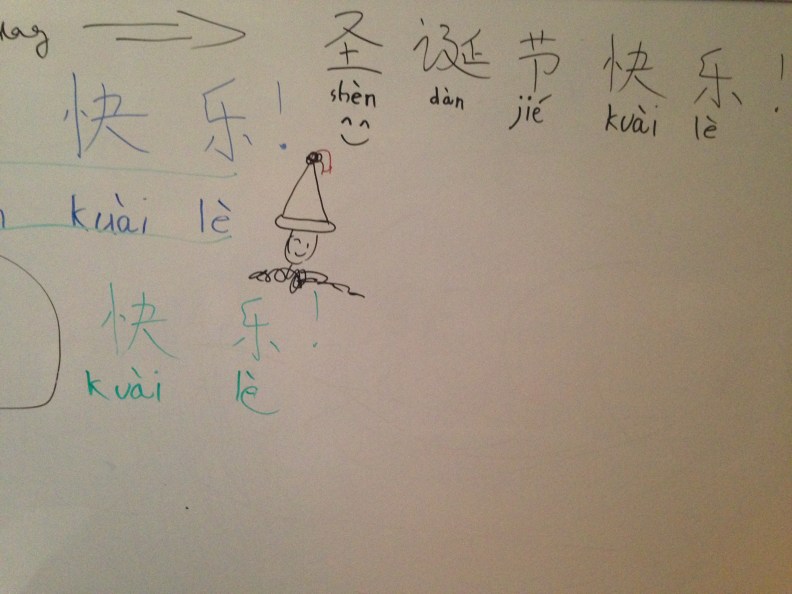 圣诞节快乐!
shèn dàn jié kuài lè
快乐!
kuài lè
快乐!
kuài lè